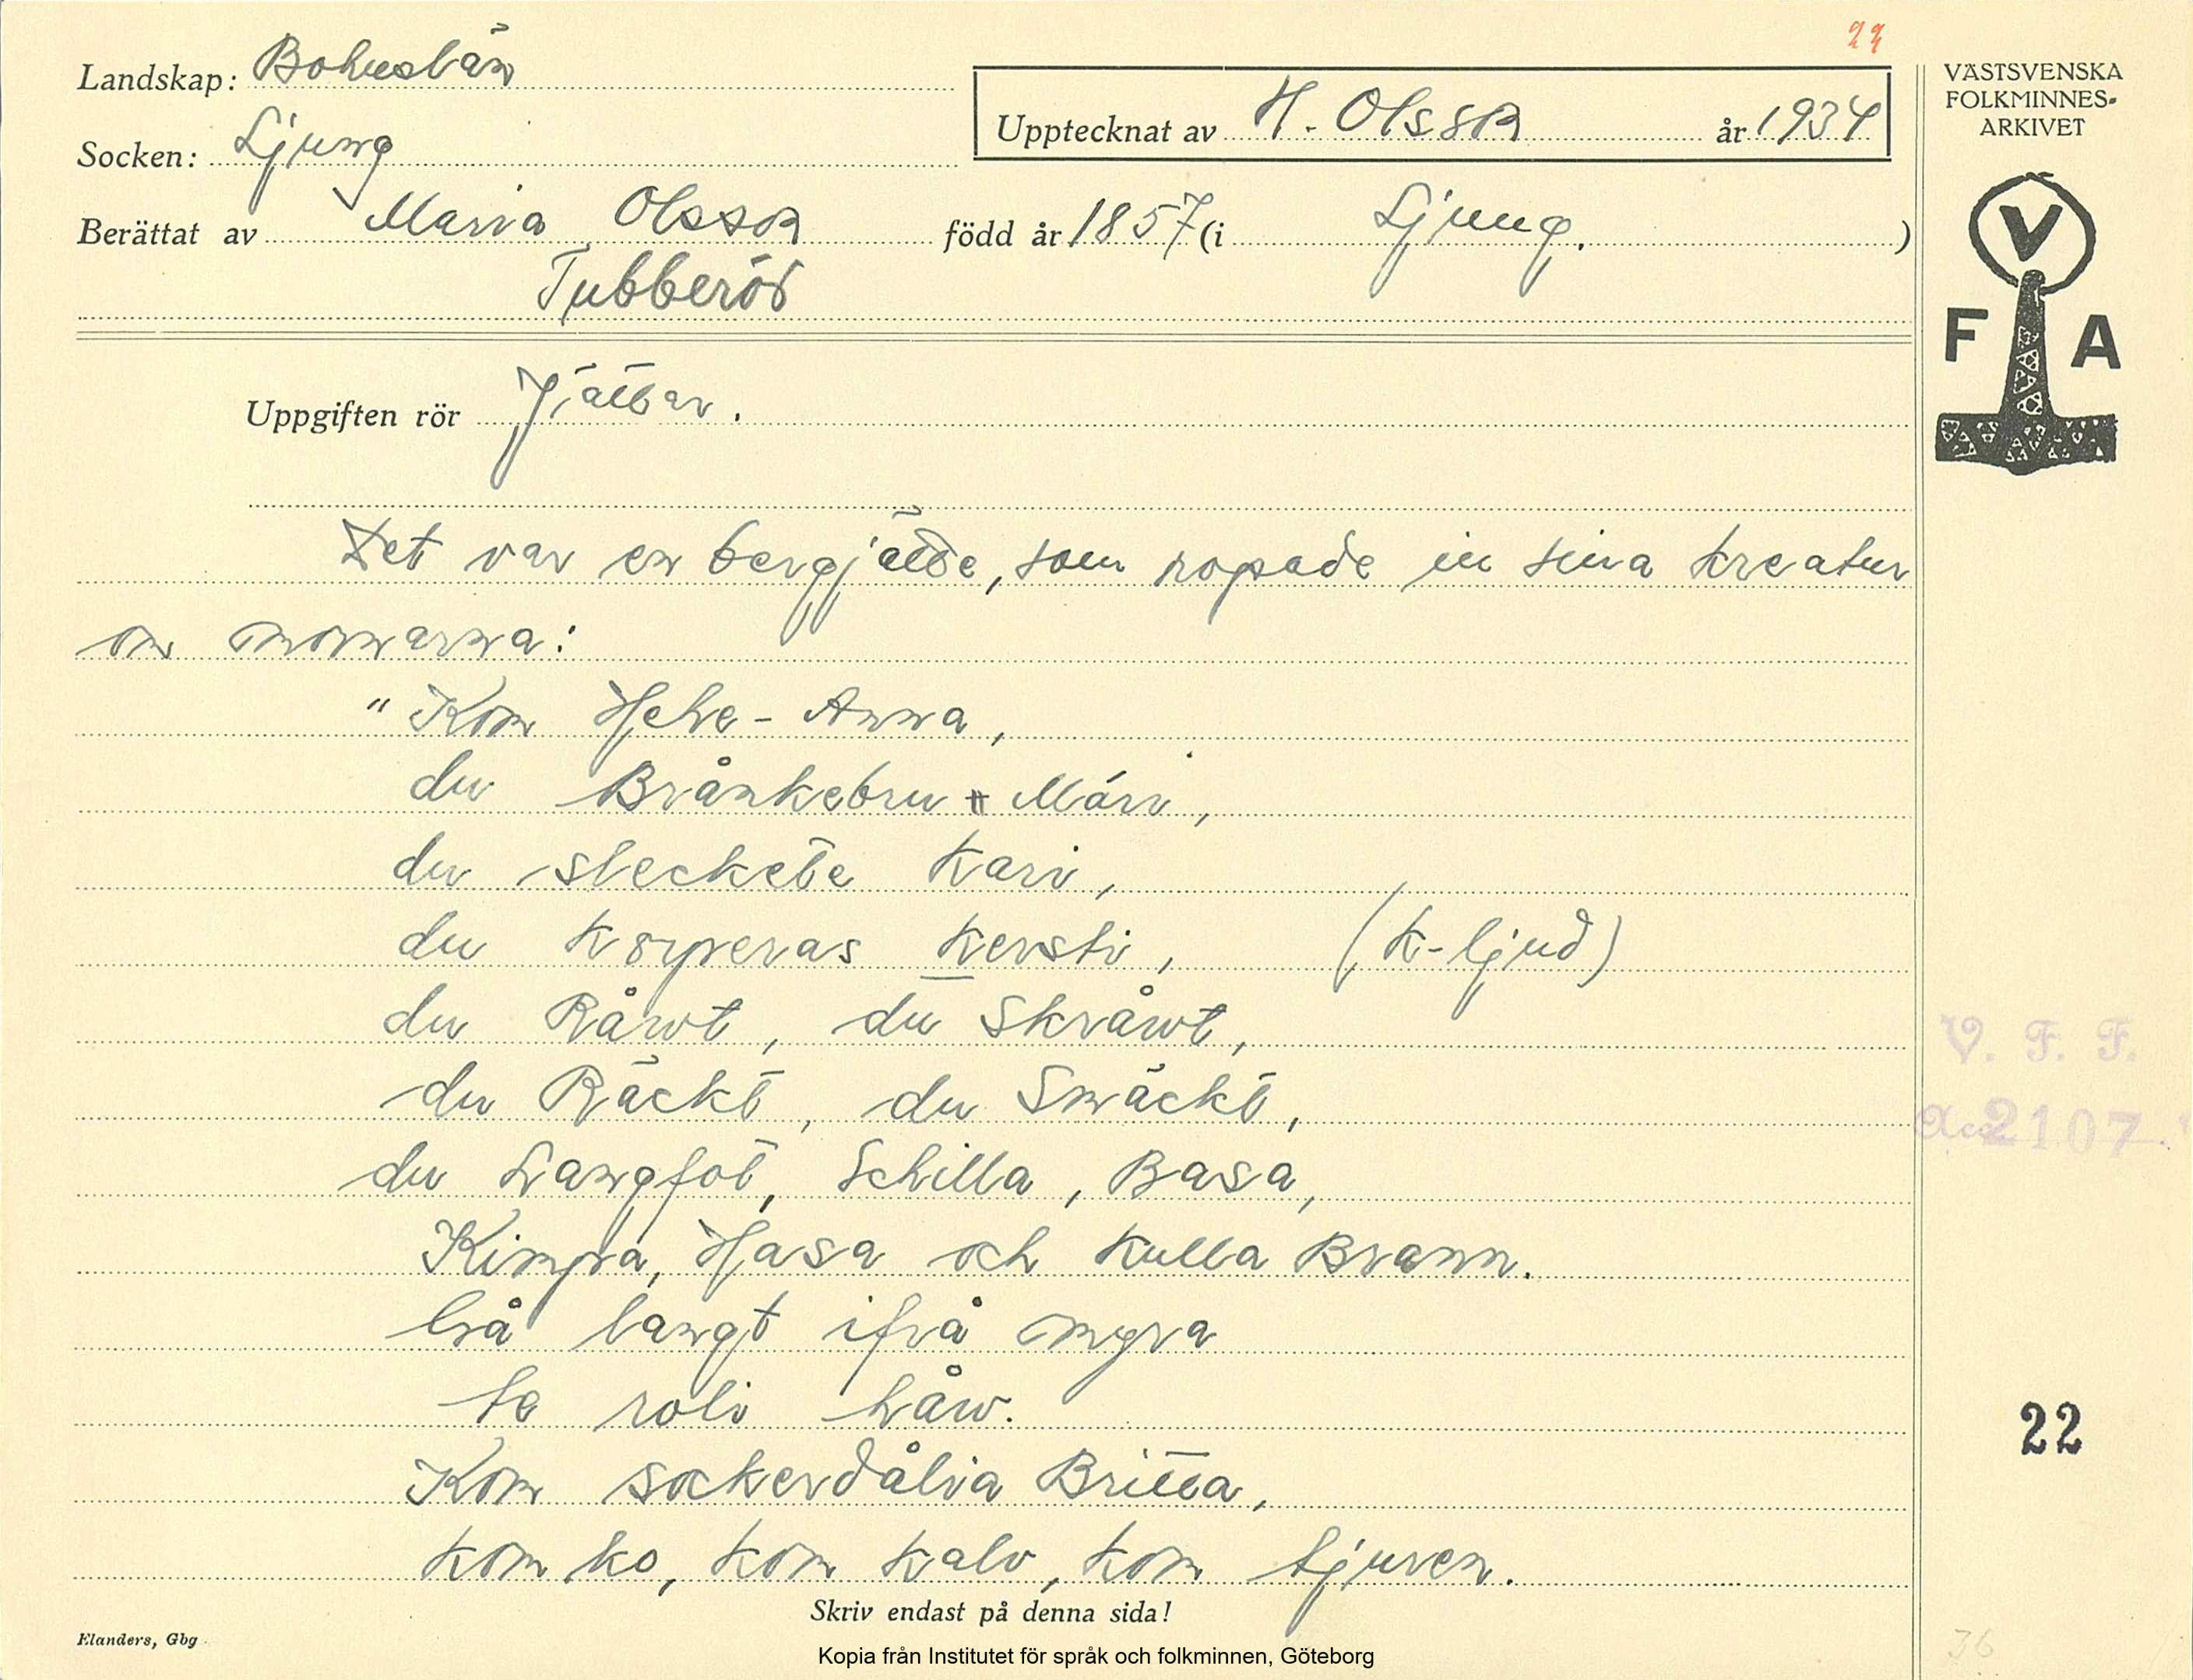 22
Landskap: Bohuslän
Upptecknat av H. Olsson år 1934
Socken: Ljung
Berättat av Maria Olsson född år 1857 (i Ljung.)
Tubberöd
VÄSTSVENSKA
FOLKMINNES-
ARKIVET
V
F A
Uppgiften rör Jättar.
Det var en bergjätte, som ropade in sina kreatur
om mornarna:
"Kom Hehe-Anna,
du Brånkebru Mári,
du sleckete Kari,
du Korperas Kersti, (K-ljud)
du Råwt, du Skråwt,
du Räckt, du Smäckt,
du Langfot, Schilla, Basa,
Kimpra, Hasa och Kulla Brann.
langt ifrå myra
te roli håw.
Kom sockerdålia Britta,
kom ko, kom kalv, kom tjuren.
V. F. F.
Acc 2107.
22
36
Skriv endast på denna sida!
Elanders, Gbg
Kopia från Institutet för språk och folkminnen, Göteborg